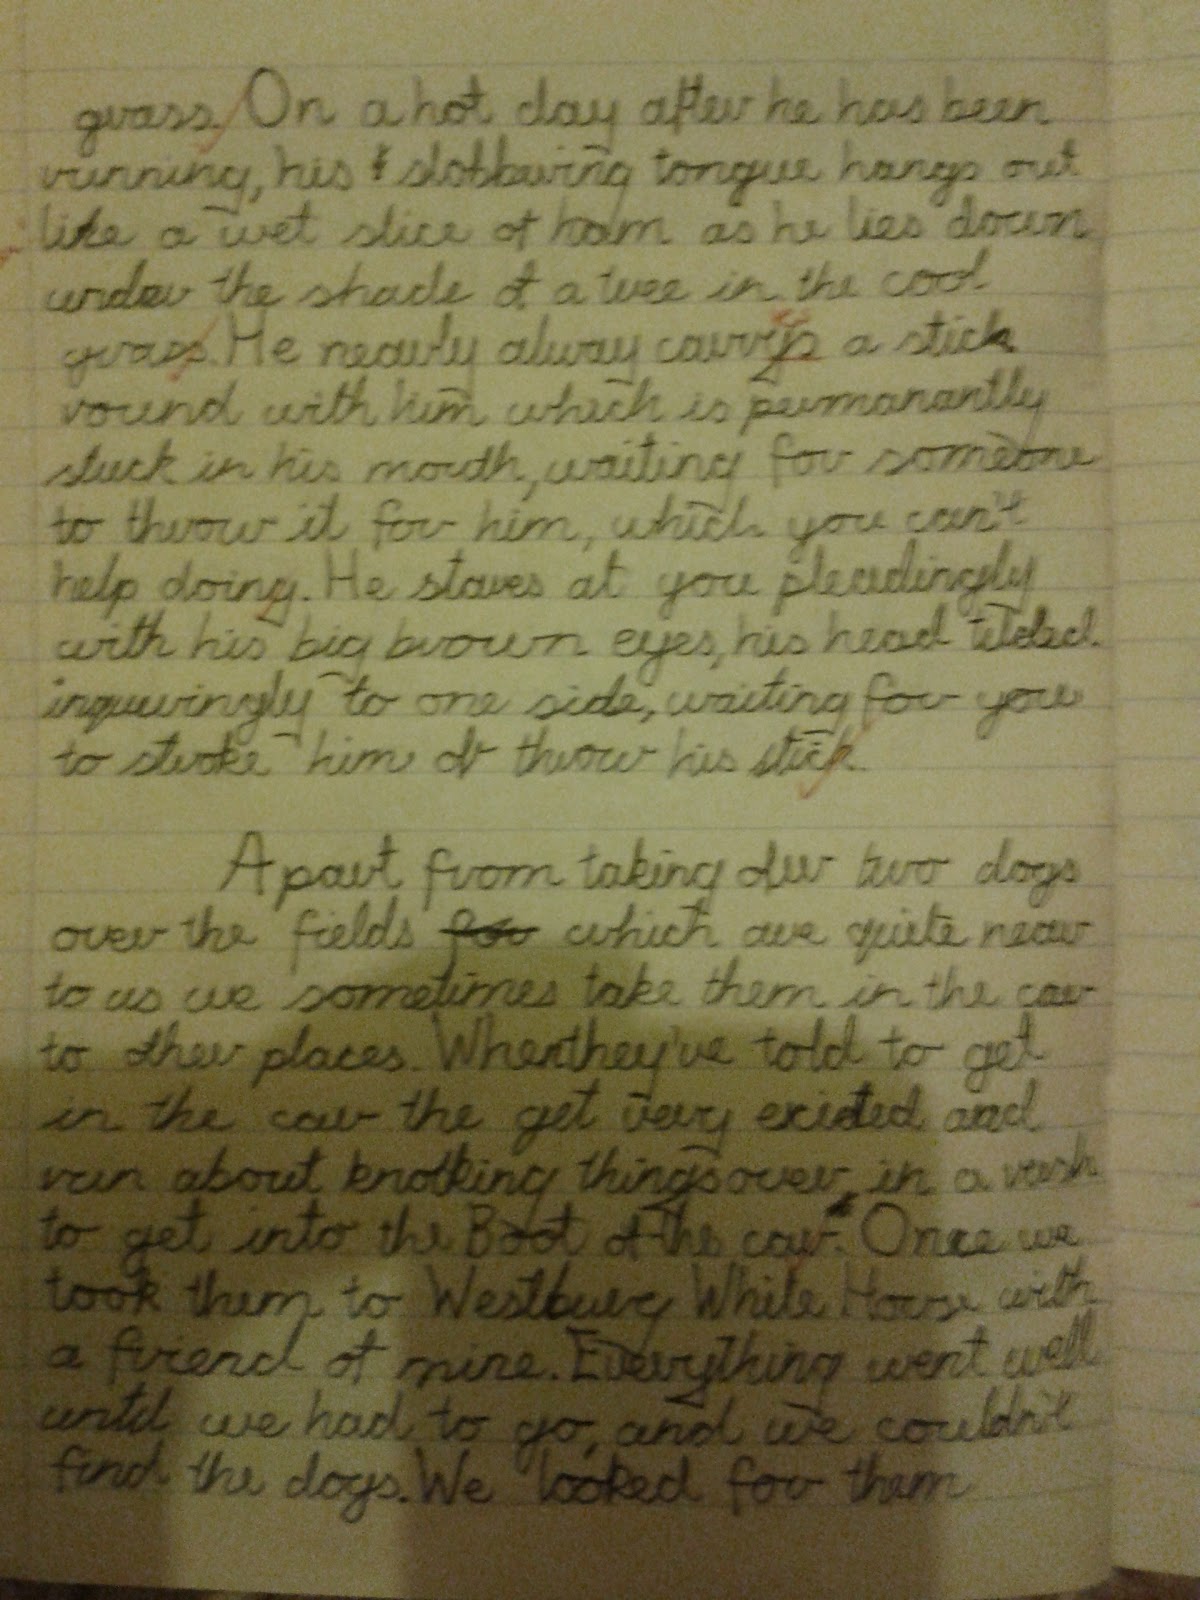 grass. On a hot day after he has been
running, his slobbering tongue hangs out
like a wet slice of ham as he lies down
under the shade of a tree in the cool
grass. He nearly alway carrys a stick
round with him which is permanantly
stuck in his mouth, waiting for someone
to throw it for him, which you can't
help doing. He stares at you pleadingly
with his big brown eyes, his head
inquiringly to one side, waiting for you
to stroke him or throw his stick.
Apart from taking our two dogs
over the fields for which are quite near
to us we sometimes take them in the car
to other places. When they've told to get
in the car the get very excited and
run about knotking things over in a rush
to get into the Boot of the car. Once we
took them to Westbury White Horse with
a friend of mine. Everything went well
until we had to go, and we couldn't
find the dogs. We looked for them